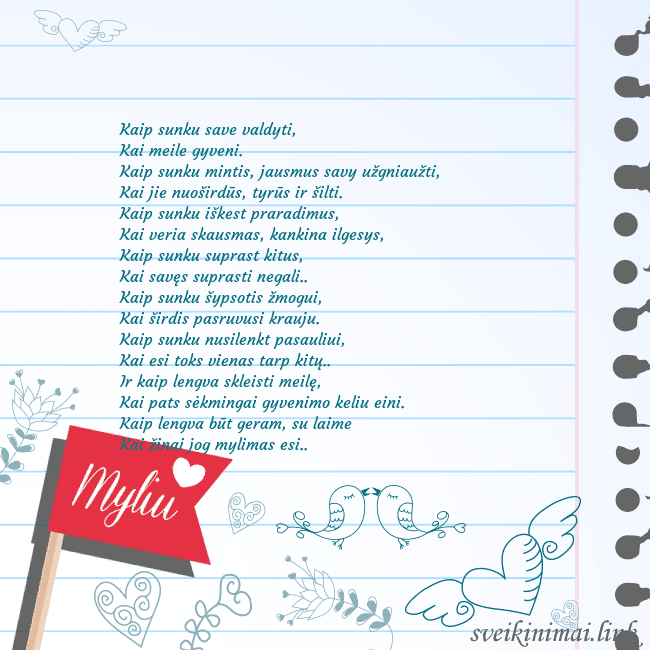 Kaip sunku save valdyti,
Kai meile gyveni.
Kaip sunku mintis, jausmus savy užgniaužti,
Kai jie nuoširdūs, tyrūs ir šilti.
Kaip sunku iškest praradimus,
Kai veria skausmas, kankina ilgesys,
Kaip sunku suprast kitus,
Kai savęs suprasti negali..
Kaip sunku šypsotis žmogui,
Kai širdis pasruvusi krauju.
Kaip sunku nusilenkt pasauliui,
Kai esi toks vienas tarp kitų..
Ir kaip lengva skleisti meilę,
Kai pats sėkmingai gyvenimo keliu eini.
Kaip lengva būt geram, su laime
Kai žinai jog mylimas esi..
Myliu
sveikinimai.link